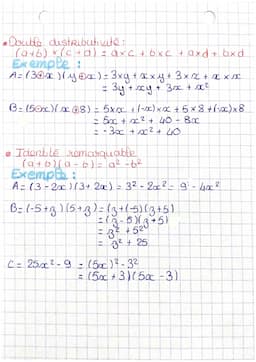 • Double distributivité :
(a+b) × (c+d) = a×c + b×c + a×d + b×d
Exemple :
A = (3⊕x)(y⊕x) = 3×y + x×y + 3×x + x×x
= 3y + xy + 3x + x²
B = (5⊖x)(x⊕8) = 5×x + (-x)×x + 5×8 + (-x)×8
= 5x + x² + 40 - 8x
= -3x + x² + 40
• Identité remarquable
(a+b)(a-b) = a² - b²
Exemple :
A = (3-2x)(3+2x) = 3² - 2x² = 9 - 4x²
B = (-5+3)(5+3) = (3+(-5)(3+5)
= (3-5)(3+5)
= 3² + 5²
= 3² + 25
C = 25x² - 9 = (5x)² - 3²
= (5x+3)(5x-3)